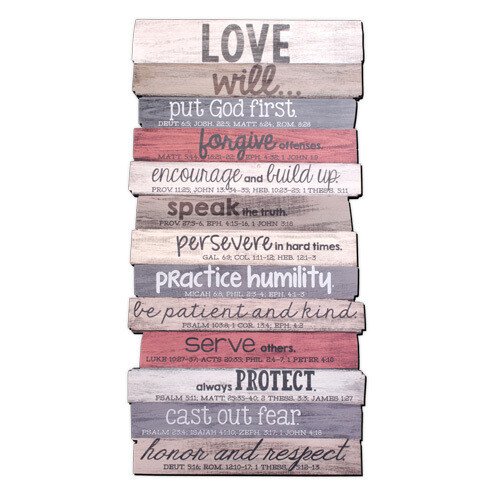 LOVE
will...
put God first.
DEUT. 6:5; JOSH. 22:5; MATT. 6:24; ROM. 8:28
forgive offenses.
MATT. EPH. 4:32; 1 JOHN 1:9
encourage and build up.
PROV. 11:25; JOHN 13:34-35; HEB. 10:23-25; 1 THESS. 5:11
speak the truth.
PROV. 27:5-6, EPH. 4:15-16, 1 JOHN 3:18
persevere in hard times.
GAL. 6:9; COL. 1:11-12; HEB. 12:1-3
practice humility.
MICAH 6:8; PHIL. 2:3-4; EPH. 4:1-3
be patient and kind.
PSALM 103:8; 1 COR. 13:4; EPH. 4:2
serve others.
LUKE 10:27-37; ACTS 20:35; PHIL. 2:4-7; 1 PETER 4:10
always PROTECT.
PSALM 5:11; MATT. 25:35-40; 2 THESS. 3:3; JAMES 1:27
cast out fear.
PSALM 23:4; ISAIAH 41:10; ZEPH. 3:17; 1 JOHN 4:18
honor and respect.
DEUT. 5:16; ROM. 12:10-17, 1 THESS. 5:12-13